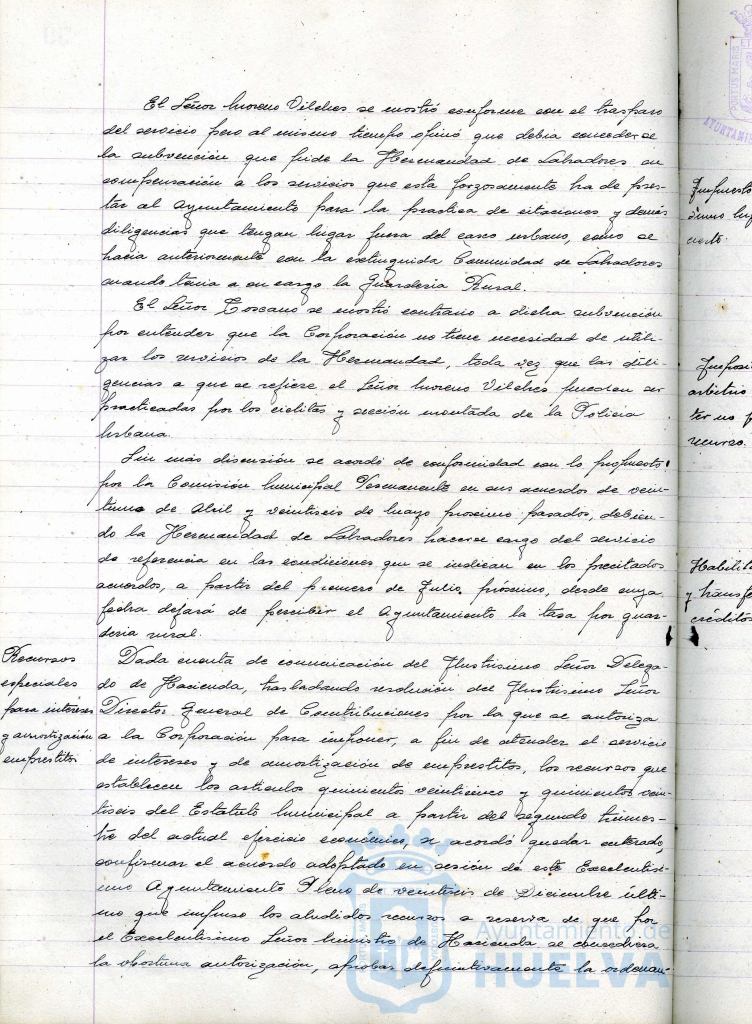 El Señor Moreno Vilches se mostró conforme con el traspaso
del servicio pero al mismo tiempo opinó que debia concederse
la subvención que pide la Hermandad de Labradores en
compensación a los servicios que esta forzosamente ha de pres-
tar al Ayuntamiento para la practica de citaciones y demás
diligencias que tengan lugar fuera del casco urbano, como se
hacia anteriormente con la extinguida Comunidad de Labradores
cuando tenia a su cargo la Guarderia Rural.
El Señor Toscano se mostró contrario a dicha subvención
por entender que la Corporación no tiene necesidad de utili-
zar los servicios de la Hermandad, toda vez que las dili-
gencias a que se refiere el Señor Moreno Vilches pueden ser
practicadas por los ciclistas y sección montada de la Policia
Urbana.
Sin más discusión se acordó de conformidad con lo propuesto
por la Comisión Municipal Permanente en sus acuerdos de vein-
tiuno de Abril y veintiseis de Mayo proximo pasados, debien-
do la Hermandad de Labradores hacerse cargo del servicio
de referencia en las condiciones que se indican en los precitados
acuerdos, a partir del primero de Julio, próximo, desde cuya
fecha dejará de percibir el Ayuntamiento la tasa por guar-
deria rural.
Recursos
especiales
para intereses
y amortización
emprestitos
Dada cuenta de comunicación del Ilustrisimo Señor Delega-
do de Hacienda, trasladando resolución del Ilustrisimo Señor
Director General de Contribuciones por la que se autoriza
a la Corporación para imponer, a fin de atender el servicio
de intereses y de amortización de emprestitos, los recursos que
establecen los articulos quinientos veinticinco y quinientos vein-
tiseis del Estatuto Municipal a partir del segundo trimes-
tre del actual ejercicio económico, se acordó quedar enterado,
confirmar el acuerdo adoptado en sesión de este Excelentisi-
mo Ayuntamiento Pleno de veintiseis de Diciembre últi-
mo que impuso los aludidos recursos a reserva de que por
el Excelentisimo Señor Ministro de Hacienda se concediera
la oportuna autorización, aprobar definitivamente la ordenan-
Ayuntamiento de
HUELVA